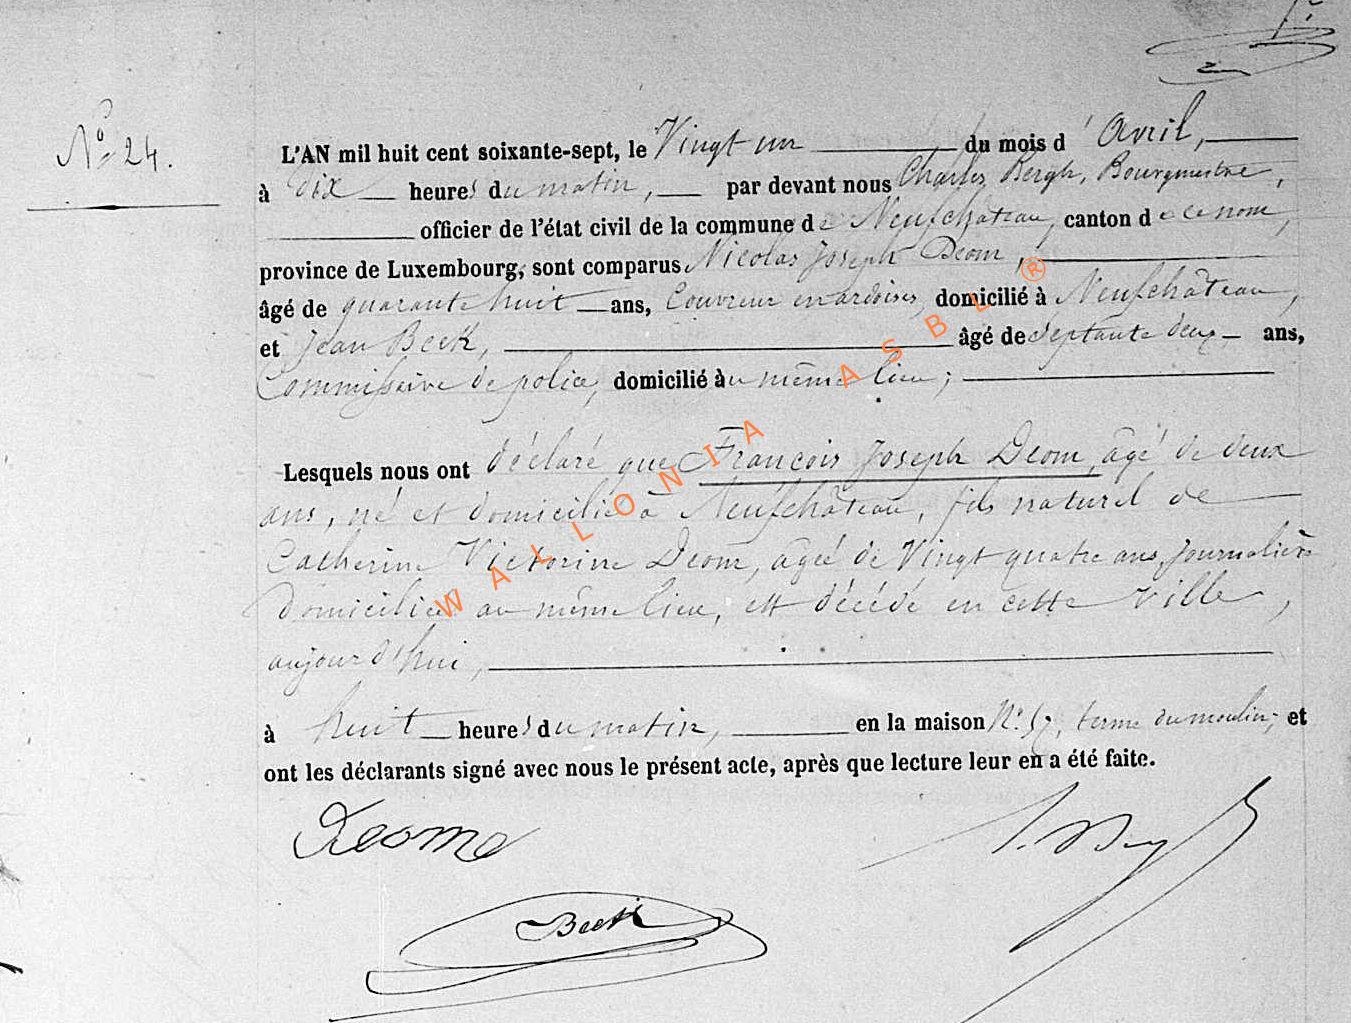 N° 24.
L'AN mil huit cent soixante-sept, le Vingt un du mois d' Avril,
à dix heures du matin, par devant nous Charles Bergh, Bourgmestre,
officier de l'état civil de la commune de Neufchâteau, canton de ce nom,
province de Luxembourg, sont comparus Nicolas Joseph Deom,
âgé de quarante huit ans, Couvreur en ardoises, domicilié à Neufchâteau,
et Jean Beck, âgé de septante deux ans,
Commissaire de police, domicilié au même lieu;
Lesquels nous ont déclaré que François Joseph Deom, âgé de deux
ans, né et domicilié à Neufchâteau, fils naturel de
Catherine Victorine Deom, âgée de Vingt quatre ans, journalière
domiciliée au même lieu, est décédé en cette Ville,
aujourd'hui,
à huit heures du matin, en la maison N° ferme du moulin; et
ont les déclarants signé avec nous le présent acte, après que lecture leur en a été faite.
Deome
Beck
WALLONIA ASBL ®